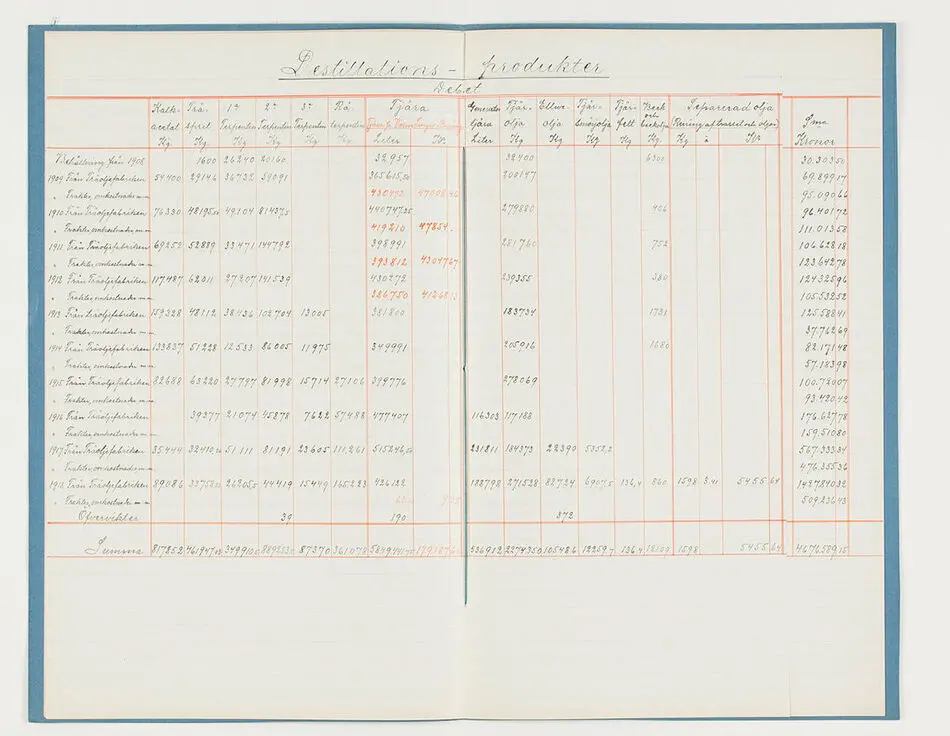 Destillations - produkter
Debet
Kalk- Trä- 1a 2a 3a Rå- Tjära Generator Tjär- Ellwe- Tjär- Tjär- Beck Separerad olja Sme
acetat sprit Terpentin Terpentin Terpentin terpentin tjära olja olja smörjolja fett och beckolja
Kg Kg Kg Kg Kg Kg Liter Kr Liter Kg Kg Kg Kg Kg Kg à Kr Kronor
Behållning från 1908 1600 26240 20160 32957 32400 6300 30.303 50
1909 Från Träoljefabriken 54400 29146 36732 59091 365615,50 200147 69.899 17
" Frakter, omkostnader m m 430493 95.090 66
1910 Från Träoljefabriken 76330 48195,50 49104 81437,5 440747,25 279880 406 96.401 72
" Frakter, omkostnader m m 419210 47854. 111.013 58
1911 Från Träoljefabriken 69252 52889 33471 144792 398991 281760 752 106.628 18
" Frakter, omkostnader m m 393812 43047 67 123.642 78
1912 Från Träoljefabriken 117487 62011 27207 141539 430272 239355 380 124.325 96
" Frakter, omkostnader m m 386750 105.532 52
1913 Från Träoljefabriken 159328 48112 38436 102704 13005 381800 183734 1731 125.588 41
" Frakter, omkostnader m m 37.762 69
1914 Från Träoljefabriken 133837 51228 12533 86005 11975 349991 205916 1680 82.171 48
" Frakter, omkostnader m m 57.183 98
1915 Från Träoljefabriken 82688 63220 27797 81998 15714 27106 399776 278069 100.720 07
" Frakter, omkostnader m m 93.420 42
1916 Från Träoljefabriken 39377 21074 45878 7622 57488 477407 116303 117188 176.627 78
" Frakter, omkostnader m m 159.510 80
1917 Från Träoljefabriken 35444 32410,50 51111 81191 23605 111261 515246,50 231811 184373 22390 5352,2 567.333 84
" Frakter, omkostnader m m 476.355 36
1918 Från Träoljefabriken 89086 26205,5 44419 15449 165223 426122 188798 271528 82724 6907,5 136,4 860 1598 3.41 5455 64 1427840 32
" Frakter, omkostnader m m 509236 43
Öfvervikter 39 190 372
Summa 817852 349910,0 87370 361078 536912 2274350 105486 12259,7 136,4 12109 1598 5455 64 4676.589 15